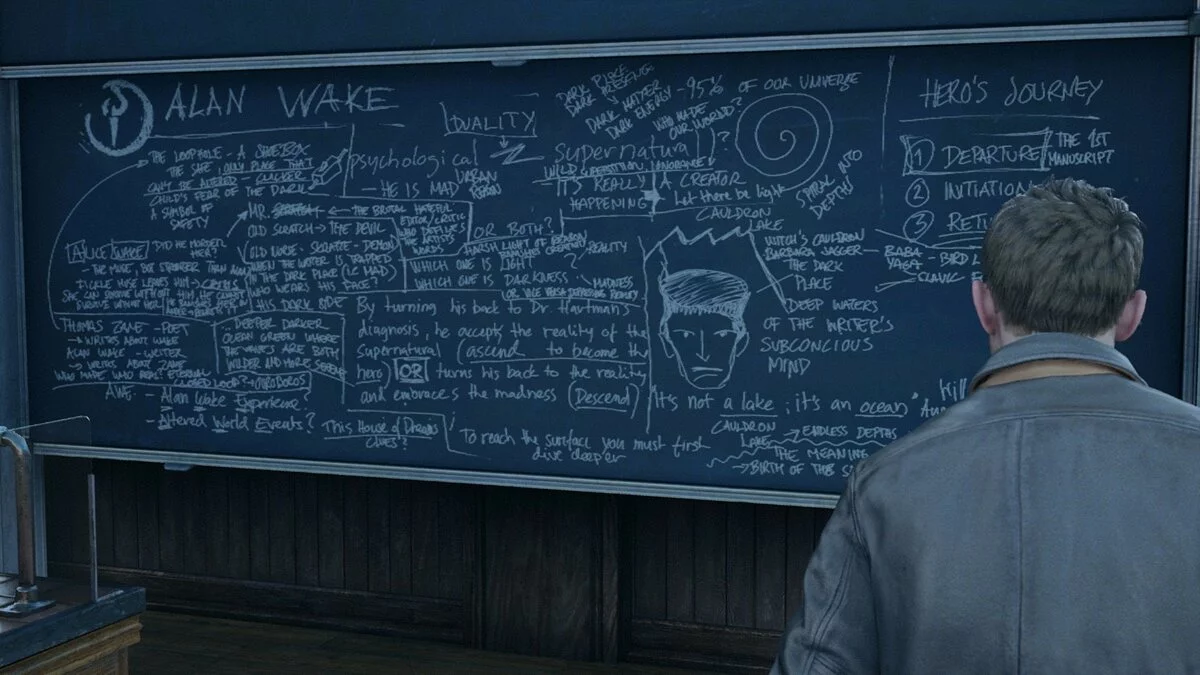 ALAN WAKE
THE LOOPHOLE - A SHOEBOX
THE SHE ONLY PLACE THAT
CAN'T BE ALTERED - CLICKER
CHILD'S FEAR OF THE DARK
A SYMBOL OF
SAFETY
ALICE WAKE
DID HE MURDER
HER?
- THE MUSE, BUT STRONGER THAN ALAN
FICKLE MUSE LEAVES HIM → CRISIS
SHE CAN SURVIVE WITHOUT HIM HE CANNOT
SURVIVE WITHOUT HER
THOMAS ZANE - POET
→ WRITES ABOUT WAKE
ALAN WAKE - WRITER
→ WRITES ABOUT ZANE
WHO MADE WHO REAL? ETERNAL
CLOSED LOOP? OUROBOROS
AWE - Alan Wake Experience?
- Altered World Events?
DEEPER DARKER
OCEAN GREEN WHERE
THE WAVES ARE BOTH
WILDER AND MORE SERENE
DUALITY
psychological
- HE IS MAD
URBAN
MR. SCRATCH ← THE BRUTAL HATEFUL
EDITOR/CRITIC
WHO DEFILES
THE ARTIST'S
WORDS
OLD SCRATCH → THE DEVIL
(OLD NORSE - SKRATTE - DEMON)
WHEN THE WRITER IS TRAPPED
IN THE DARK PLACE (I.E MAD)
WHO WEARS HIS FACE?
HIS DARK SIDE
DARK PLACE
DARK PRESENCE
DARK MATTER
DARK ENERGY
- 95% OF OUR UNIVERSE
WHO MADE
OUR WORLD?
supernatural?
WILD SUPERSTITION IGNORANCE
IT'S REALLY
HAPPENING
A CREATOR
Let there be light
SPIRAL INTO
DEPTH
OR BOTH?
HARSH LIGHT OF REASON
BANISHES CREATIVITY
WHICH ONE IS LIGHT ? REALITY
WHICH ONE IS DARKNESS - MADNESS
OR VICE VERSA DEPENDING REALITY
By turning his back to Dr Hartman's
diagnosis, he accepts the reality of the
supernatural (ascend to become the
hero) OR turns his back to the reality
and embraces the madness (Descend)
This House of Dreams
CLUES?
To reach the surface you must first
dive deeper
CAULDRON
LAKE
WITCH'S CAULDRON
BARBARA JAGGER -
THE DARK
PLACE
BABA-
YAGA - BIRD L
SLAVIC
DEEP WATERS
OF THE WRITER'S
SUBCONCIOUS
MIND
It's not a lake; it's an ocean
CAULDRON
LAKE
→ ENDLESS DEPTHS
THE MEANING
→ BIRTH OF THIS
HERO'S JOURNEY
1 DEPARTURE
THE 1ST
MANUSCRIPT
2 INITIATION
3 RETU